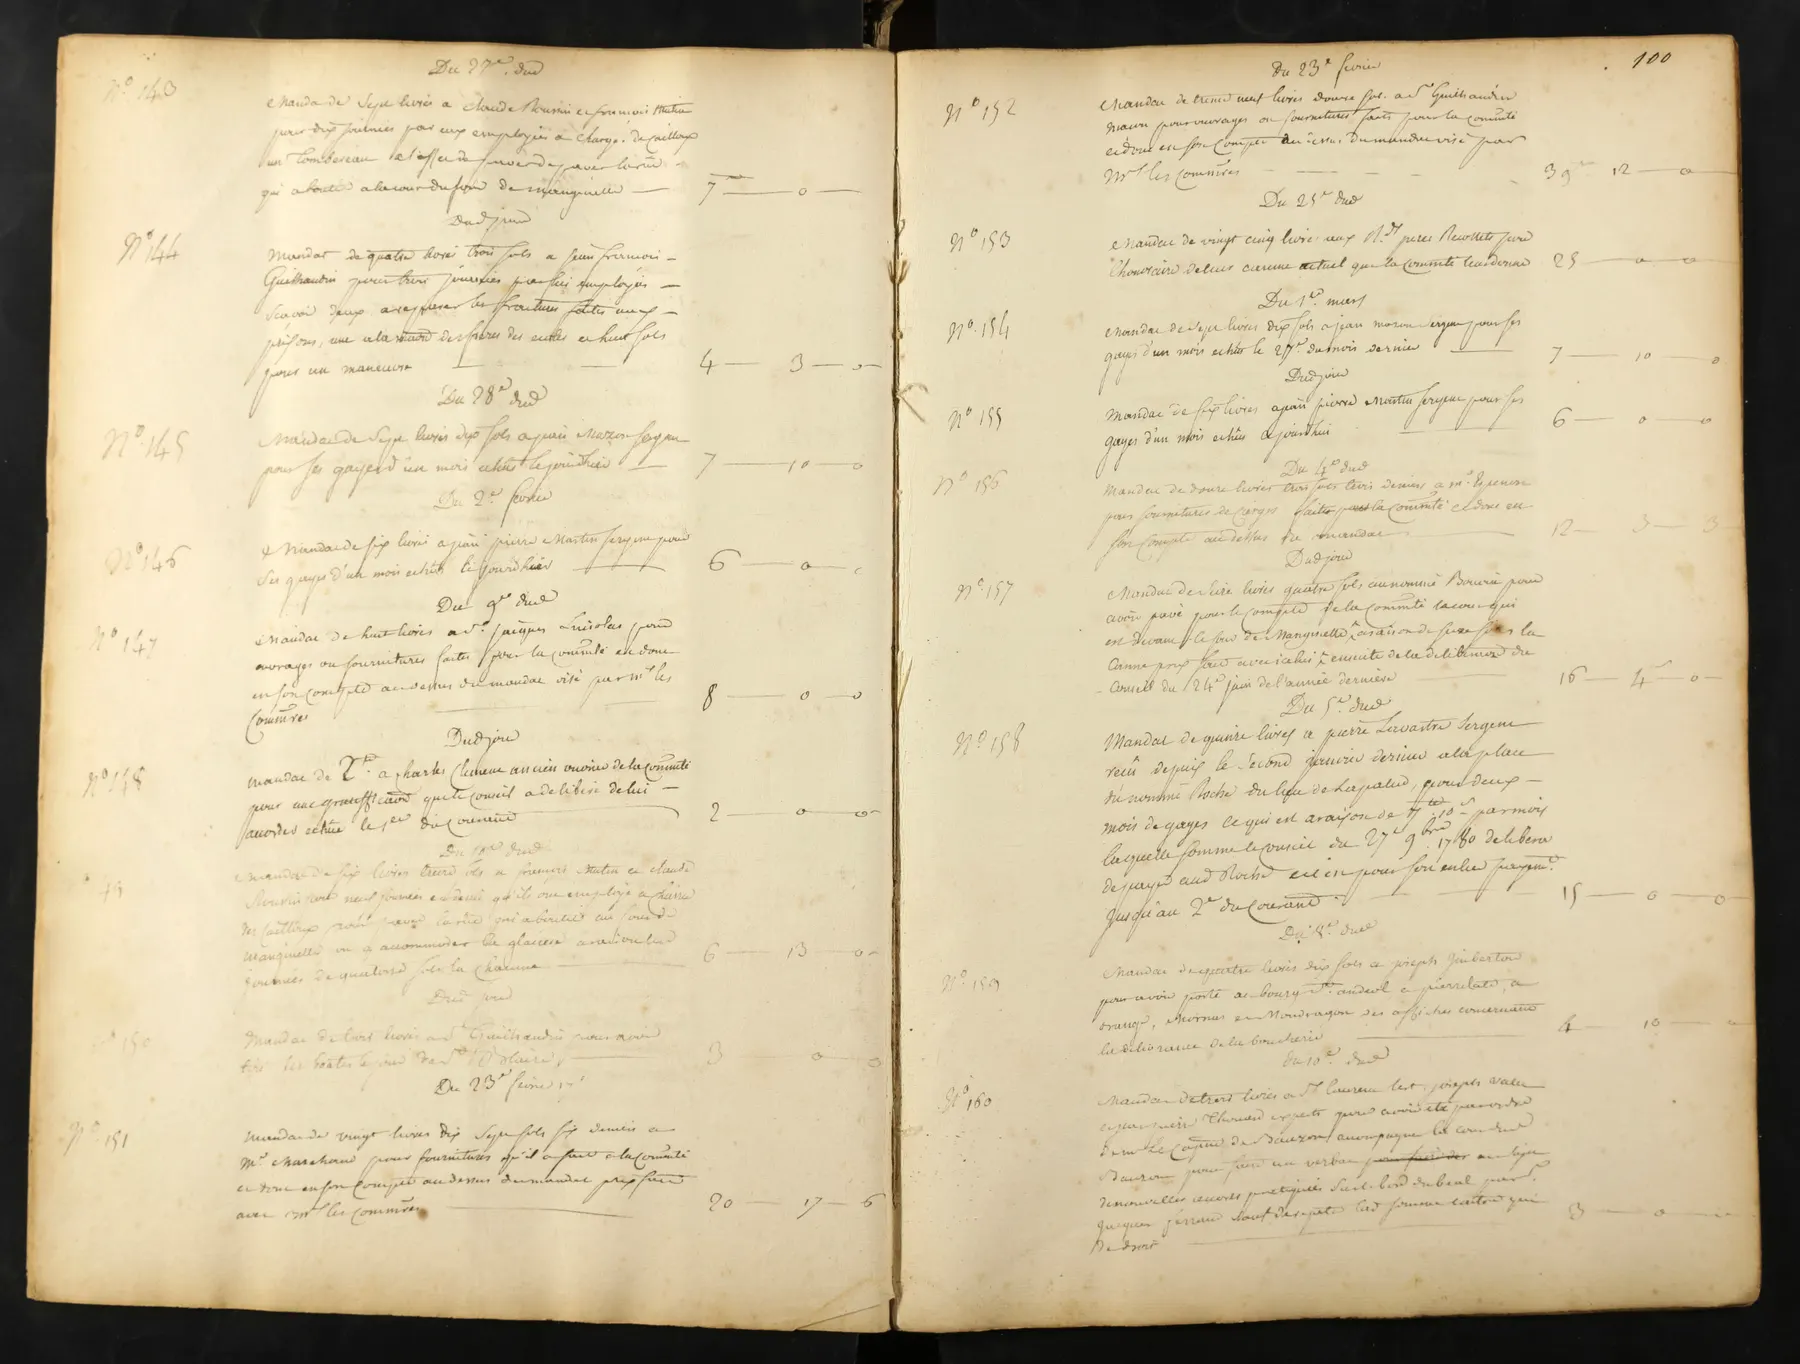 Du 27e. dud
No 143
Mandat de Sept livres a Claude Roussin et francois
pour dix journées par eux employées a charger de Cailloux
un Tombereau a l'effet de paver la rüe
qui aboutit a la cour du four de manginelle
7 — 0 —
Dud jour
No 144
Mandat de quatre livres trois sols a jean francois
Guilhaudin pour trois journées par lui employées
scavoir deux a reparer les fractures faites aux
prisons, une a la des freres des ecoles et huit sols
pour un maneuvre
4 — 3 — 0
Du 28e dud
No 145
Mandat de Sept livres dix sols a jean Mazon sergent
pour ses gages d'un mois echus le jourdhier
7 — 10 — 0
Du 2e. fevrier
No 146
Mandat de six livres a jean pierre Martin sergent pour
ses gages d'un mois echus le jourdhier
6 — 0 — 0
Du 9e dud
No 147
Mandat de huit livres a Sr. jacques pour
ouvrages ou fournitures faites pour la comunté et donc
en son compte au dessus du mandat visé par mrs les
Commres
8 — 0 — 0
Dud jour
No 148
mandat de 2 a charles ancien de la comunté
pour une gratiffication que le conseil a deliberé de lui
accorder echue le 1er du Courent
2 — 0 — 0
Du dud
49
Mandat de six livres treize sols a francois et claude
Roussin pour neuf journées qu'ils ont employé a
des cailloux pour paver la rue qui aboutit au four de
manginelle ou a accommoder la glaciere a raison lad
journée de quatorze sols la chacune
6 — 13 — 0
Dud jour
150
Mandat de trois livres a Sr Guilhaudin pour avoir
tiré les boetes le jour de
3 0 0
Du 23e fevrier
No 151
Mandat de vingt livres dix Sept sols six deniers a
Mr. Marchand pour fournitures qu'il a fait a la comunté
et donc en son compte au dessus du mandat prix fait
avec mrs les commres
20 — 17 — 6
100
Du 23e fevrier
No 152
Mandat de trente neuf livres douze sols a Sr Guilhaudin
macon pour ouvrages ou fournitures faits pour la comunté
et donc en son Compte au dessus du mandat visé par
Mrs les Commres
39 12 — 0
Du 25e dud
No 153
Mandat de vingt cinq livres aux Rds peres Recollets pour
l'honoraire de leur careme actuel que la Comunté leur donne
25 — 0 — 0
Du 1er. mars
No. 154
Mandat de Sept livres dix sols a jean mazon sergent pour ses
gages d'un mois echus le 27e. du mois dernier
7 — 10 — 0
Dud jour
No 155
Mandat de six livres a jean pierre Martin sergent pour ses
gages d'un mois echus ajourdhui
6 — 0 — 0
Du 4e dud
No 156
Mandat de douze livres trois sols trois deniers a mr.
pour fournitures de cierges faites pour la Comunté et donc en
son compte au dessus du mandat
12 — 3 — 3
Dud jour
No. 157
Mandat de seize livres quatre sols au nommé pour
avoir pavé pour le compte de la Comunté la cour qui
est devant le four de Manginelle a raison de sols la
Canne prix fait avec icelui ensuite de la deliberation du
Conseil du 24e juin de l'année derniere
16 — 4 — 0
Du 5e. dud
No 158
Mandat de quinze livres a pierre Lavastre sergent
reçû depuis le second janvier dernier a la place
du nommé Roche du lieu de Lapalud, pour deux
mois de gages ce qui est a raison de 7 10 s par mois
laquelle somme le conseil du 27e 9bre 1780 delibera
de payer aud Roche et c'en pour son entier payemt.
jusqu'au 2e du Courant
15 — 0 — 0
Du 8e. dud
No 159
Mandat de quatre livres dix sols a joseph Imberton
pour avoir porté au bourg St. andeol a pierrelate, a
orange, Mornas et Mondragon des affiches concernant
la delivrance de la boucherie
4 — 10 —
du 10e. dud
No 160
Mandat de trois livres a Sr laurens joseph
experts pour avoir été par ordre
de mr le de Bauzon acompagner la cour dud
Bauzon pour faire un verbal pour faire des au sujet
de nouvelles œuvres pratiquées sur le bord du par Sr
jacques sauf de repeter lad somme contre qui
de droit
3 — 0 —